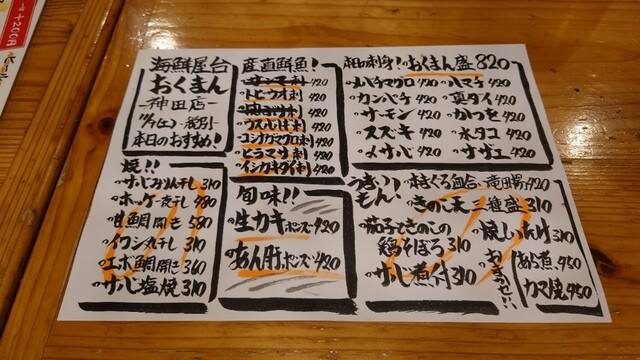 海鮮屋台
おくまん
－神田店－
(土) 税別
本日のおすすめ!
産直鮮魚!
サンマ刺 420
トビウオ刺 420
420
ウスバハギ刺 420
コシナガマグロ刺 420
ヒラマサ刺 420
イシガキダイ刺 420
お刺身!おくまん盛 820
メバチマグロ 420
ハマチ 420
カンパチ 420
真ダイ 420
サーモン 420
かつを 420
スズキ 420
水タコ 420
〆サバ 420
サザエ 420
焼!!
サバみりん干し 310
ホッケ一夜干し 480
甘鯛開き 580
イワシ丸干し 310
エボ鯛開き 360
サバ塩焼 310
旬味!!
生カキポンズ 420
あん肝ポンズ 420
うまいもん!
本まぐろ血合い竜田揚 420
きのこ天三種盛 310
茄子ときのこの
鶏そぼろ 310
焼しいたけ 310
サバ煮付 310
おまかせ!!
あら煮 450
カマ焼 450